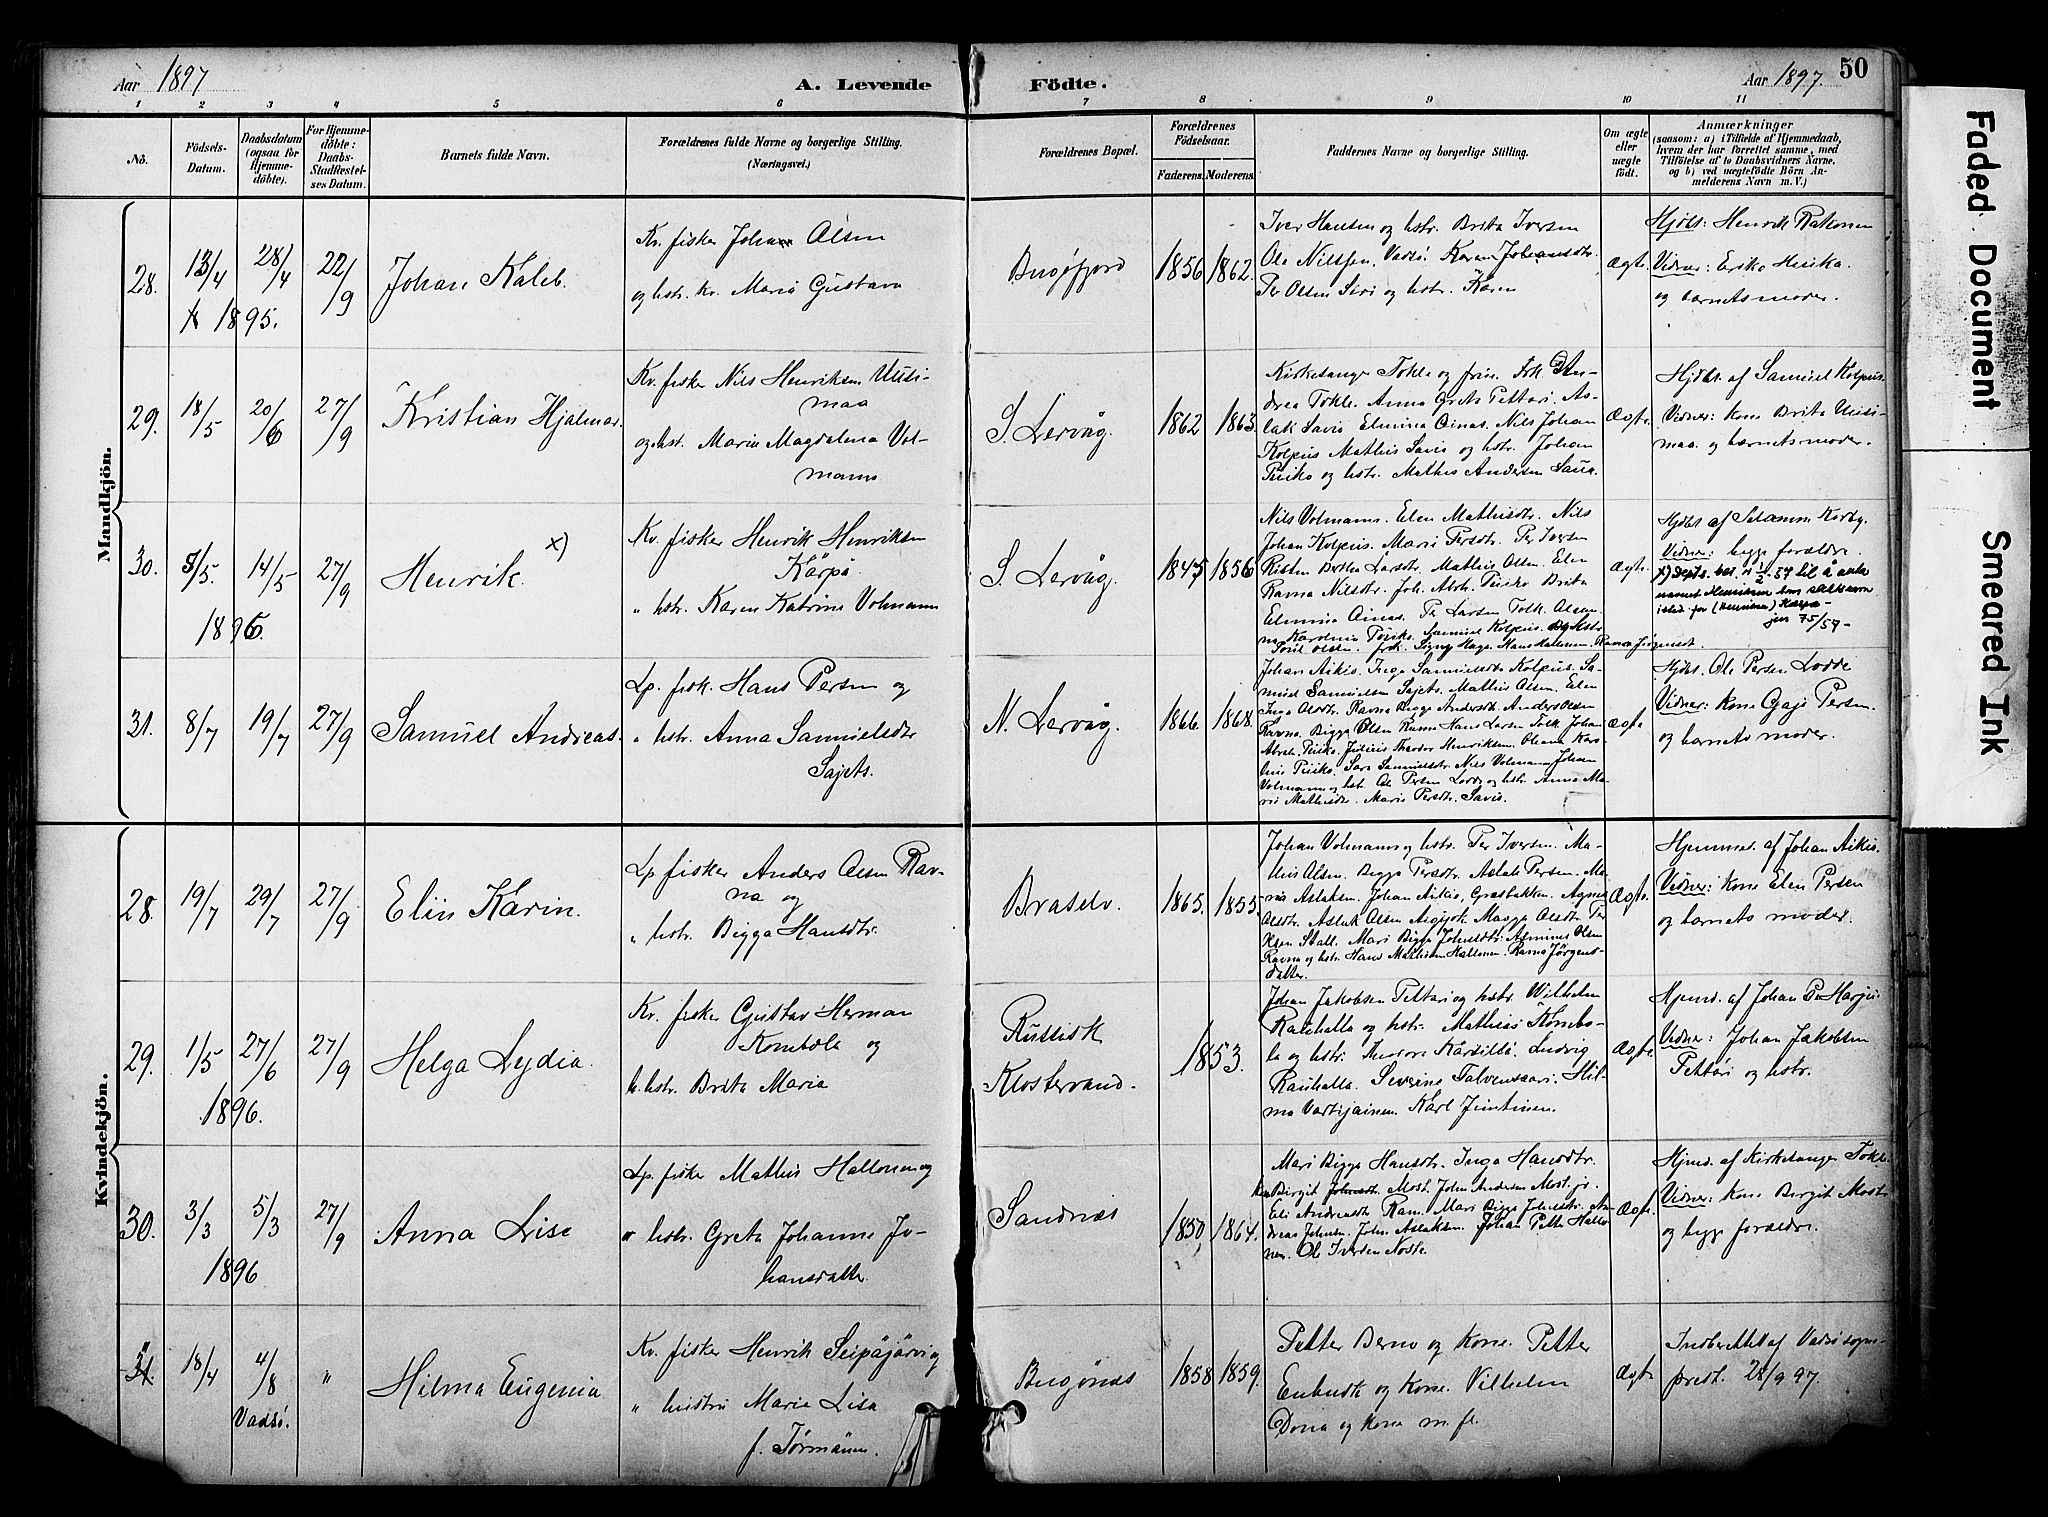 Aar 1897
A. Levende
Födte.
Aar 1897.
50
1 2 3 4 5 6 7 8 9 10 11
No.
Födsels-
Datum.
Daabsdatum
(ogsaa for
Hjemme-
döbte).
For Hjemme-
döbte:
Daabs-
Stadfæstel-
ses Datum.
Barnets fulde Navn.
Forældrenes fulde Navne og borgerlige Stilling.
(Næringsvei.)
Forældrenes Bopæl.
Forældrenes
Födselsaar.
Faderens. Moderens.
Faddernes Navne og borgerlige Stilling.
Om ægte
eller
uægte
födt.
Anmærkninger
(saasom: a) i Tilfælde af Hjemmedaab,
hvem der har forrettet samme, med
Tilföielse af to Daabsvidners Navne,
og b) ved uægtefödte Börn An-
melderens Navn m. V.)
Mandkjön.
28.
13/4
1895.
28/4
22/9
Johan Kaleb.
Kv. fisker Johan Olsen
og hstr. kv. Maria Gustava
Bugøfjord
1856
1862.
Iver Hansen og hstr. Brita Iversen
Ole Nilssen, Vadsö. Karen Johansdtr.
Per Olsen Siri og hstr. Karen
ægte.
Hjdbt: Henrik Ratonen
Vidner: Eriko Hinika.
og barnets moder.
29.
18/5
20/6
27/9
Kristian Hjalmar.
Kv. fisker Nils Henriksen Uusi-
maa
og hst. Maria Magdalena Vol-
mann
S. Lervåg.
1862
1863.
Kirkesanger Tokle og frue. Frk. An-
drea Tokle. Anna Greta Pettari. As-
lak Savio Elmina Oinas. Nils Johan
Kolpus Mathis Savio og hstr. Johan
Puiko og hstr. Mathis Andersen Saua.
ægte.
Hjdbt. af Samuel Kolpus.
Vidner: kone Brita Uusi-
maa. og barnets moder.
30.
5/5.
1896.
14/5
27/9
Henrik. x)
Kv. fisker Henrik Henriksen
Kärpä
" hstr. Karen Katrine Volmann
S. Lervåg.
1845
1856
Nils Volmann. Elen Mathisdtr. Nils
Johan Kolpus. Marie Persdtr. Per Iversen
Kisten Berthe Larsdtr. Mathis Olsen. Elen
Ravna Nilsdtr. Joh. Abrh. Puiko Brita
Elmina Oinas. Per Larsen Tolk. Olsen.
ægte
Hjdbt af Salamon Korbg.
Vidner: begge forældre.
31.
8/7
19/7
27/9
Samuel Andreas.
Lp. fisk. Hans Persen og
" hstr. Anna Samuelsdtr
Sajets.
N. Lervåg.
1866.
1868.
Johan Aikis. Inga Samuelsdtr Kolpus. Sa-
muel Samuelsen Sajets. Mathis Olsen. Elen
Inga Olsdtr. Ravna Bigga Andersdtr. Anders Olsen
Ravna. Bigga Olsen
Volmann og hstr Ole Persen Lodde og hstr. Anna Ma-
rie Mathisdtr. Marie Persdtr. Savio.
ægte
Hjdbt. Ole Persen Lodde
Vidner: kone Gaje Persen.
og barnets moder.
Kvindekjön.
28.
19/7
29/7
27/9
Elin Karin.
Lp fisker Anders Olsen Rav-
na og
" hstr. Bigga Hansdtr.
Braselv.
1865.
1855.
Johan Volmann og hstr. Per Iversen. Ma-
this Olsen. Bigga Persdtr. Aslak Persen. Ma-
ria Aslaksen. Johan Aikio, Græsbakken. Agnes
Olsdtr. Aslak Olsen Aigijok. Magga Olsdtr. Per
Olsen Stall. Mari Bigga Johnsdtr. Asminus Olsen
Ravna og hstr. Hans Mathisen Hallonen. Ravna Jørgens-
datter.
Ægte.
Hjemmed. af Johan Aikio.
Vidner: Kone Elen Persen
og barnets moder.
29.
1/5
1896.
27/6
27/9
Helga Lydia.
Kv. fisker Gustav Herman
Kombola og
h. hstr. Brita Maria
Russisk
Klostervand.
1853.
Johan Jakobsen Pettari og hstr. Wilhelm
Rauhalla og hstr. Mathias Kombo-
la og hstr. Theodor Karsillä. Ludvig
Rauhalla. Severine Talvensaari. Hil-
ma Vartijainen. Karl Juntinen.
Ægte.
Hjmd. af Johan P. Harjus
Vidner: Johan Jakobsen
Pettari og hstr.
30.
3/3
1896
5/3
27/9
Anna Lise
Lp. fisker Mathis Hallonen og
" hstr. Greta Johanne Jo-
hansdatter
Sandnæs
1850
1864.
Mari Bigga Hansdtr. Inga Hansdtr.
Birgit Johnsdtr. Most. John Andersen Most. jr.
Eli Andreasdtr Ravn. Mari Bigga Johnsdtr. An-
dreas Johnsen. John Aslaksen. Johan Petter Hallo-
nen. Ole Iversen Noste.
Ægte.
Hjmd. af Kirkesanger Tokle.
Vidner: Kone Birgit Most
og begge forældre.
31.
18/4
4/8
Vadsö.
"
Hilma Eugenia
Kv. fisker Henrik Seipäjärvi og
" hustru Maria Lisa
f. Törmänen.
Bugönæs
1858
1859.
Petter Berno og Kone. Petter
og Kone. Vilhelm
Dona og kone m. fl.
Ægte.
Indberettet af Vadsö sogne-
prest. 28/9 97.
Faded Document
Smeared Ink